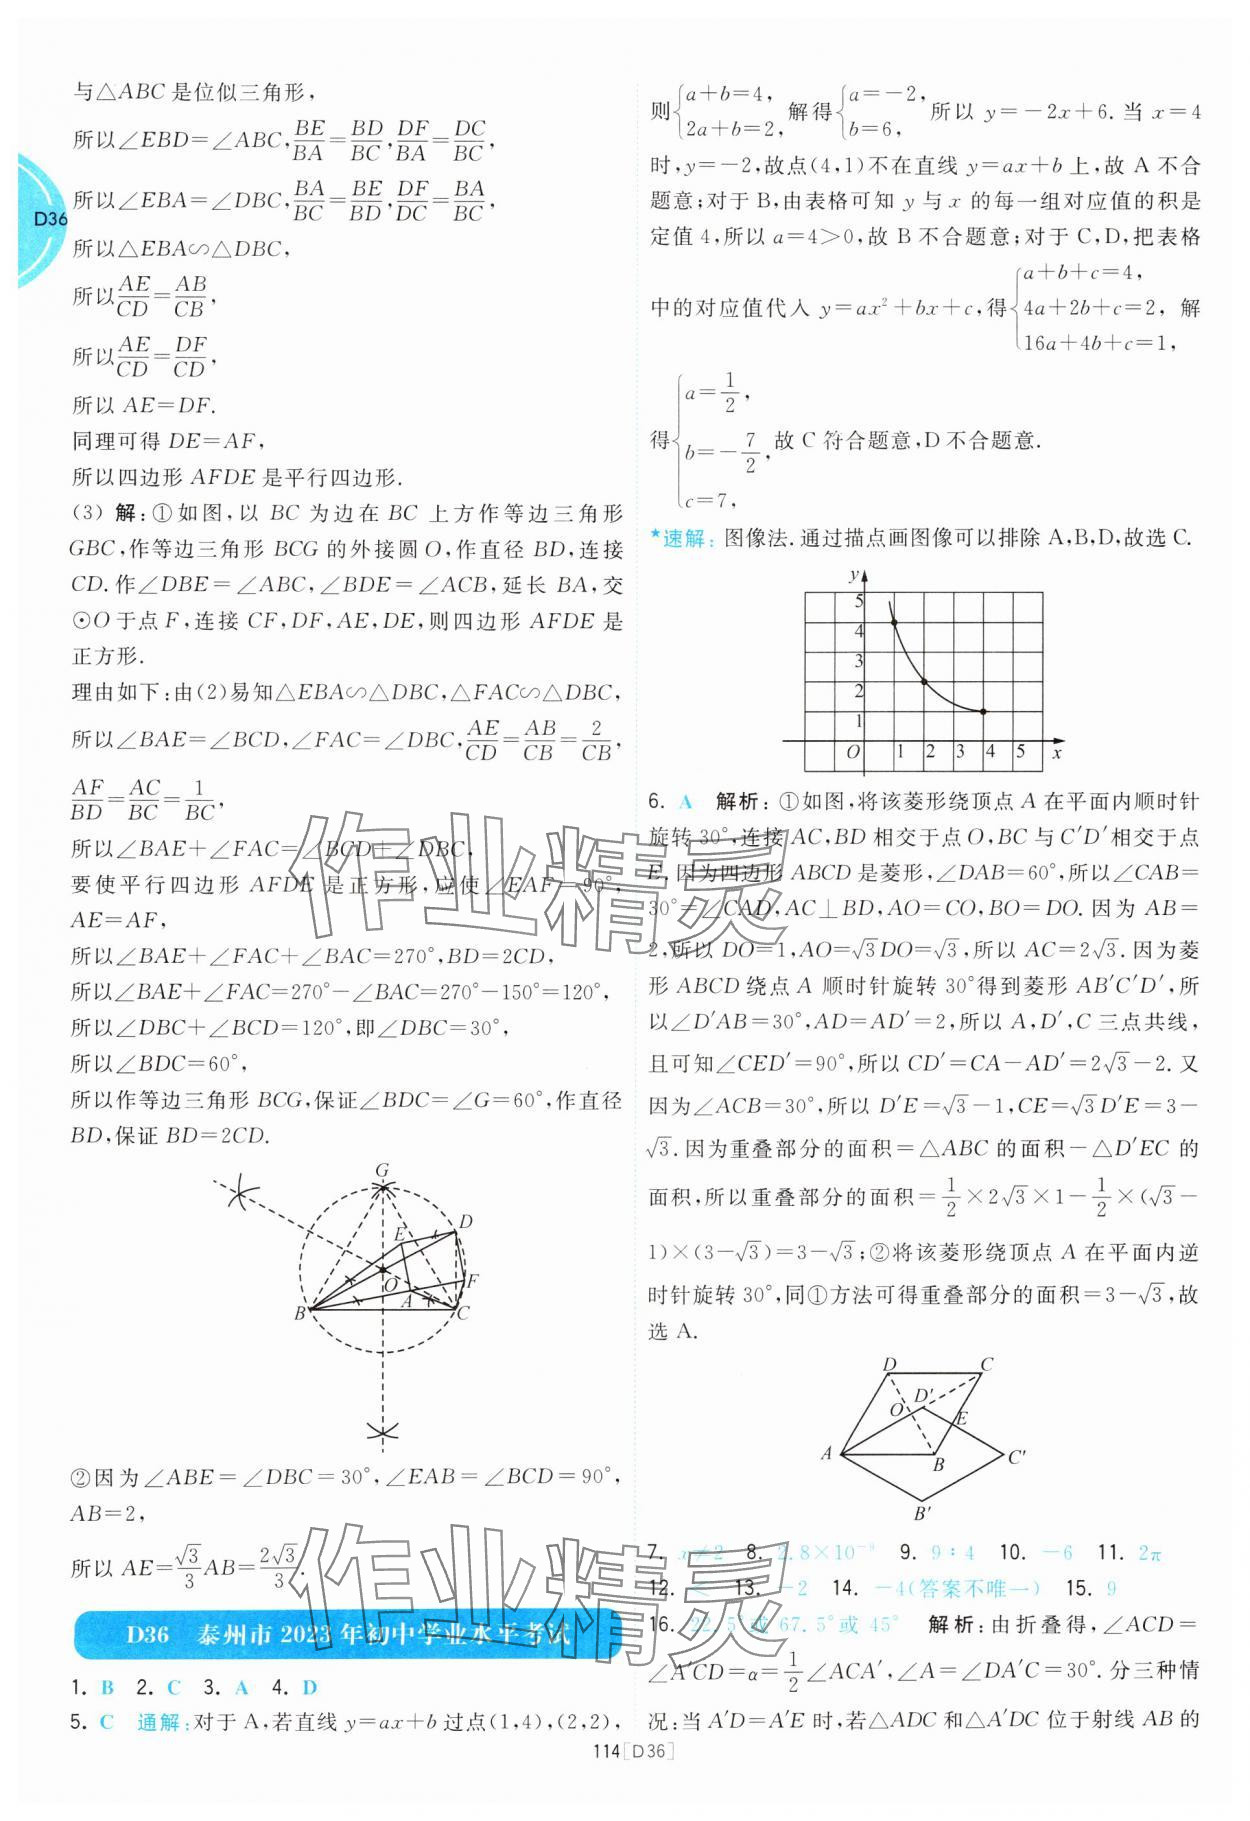 D36
与△ABC 是位似三角形,
所以∠EBD=∠ABC,BE/BA=BD/BC,DF/BA=DC/BC,
所以∠EBA=∠DBC,BA/BC=BE/BD,DF/DC=BA/BC,
所以△EBA∽△DBC,
所以AE/CD=AB/CB,
所以AE/CD=DF/CD,
所以 AE=DF.
同理可得 DE=AF,
所以四边形 AFDE 是平行四边形.
(3) 解:①如图,以 BC 为边在 BC 上方作等边三角形
GBC,作等边三角形 BCG 的外接圆 O,作直径 BD,连接
CD.作∠DBE=∠ABC,∠BDE=∠ACB,延长 BA,交
⊙O于点F,连接 CF,DF,AE,DE,则四边形 AFDE 是
正方形.
理由如下:由(2)易知△EBA∽△DBC,△FAC∽△DBC,
所以∠BAE=∠BCD,∠FAC=∠DBC,AE/CD=AB/CB=2/CB,
AF/BD=AC/BC=1/BC,
所以∠BAE+∠FAC=∠BCD+∠DBC,
要使平行四边形 AFDE 是正方形,应使∠EAF=90°,
AE=AF,
所以∠BAE+∠FAC+∠BAC=270°,BD=2CD,
所以∠BAE+∠FAC=270°-∠BAC=270°-150°=120°,
所以∠DBC+∠BCD=120°,即∠DBC=30°,
所以∠BDC=60°,
所以作等边三角形 BCG,保证∠BDC=∠G=60°,作直径
BD,保证 BD=2CD.
G
D
E
O
F
A
B
C
②因为∠ABE=∠DBC=30°,∠EAB=∠BCD=90°,
AB=2,
所以 AE=√3/3 AB=2√3/3.
D36 泰州市 2023 年初中学业水平考试
1. B 2. C 3. A 4. D
5. C 通解:对于 A,若直线 y=ax+b 过点(1,4),(2,2),
则{a+b=4, 2a+b=2, 解得{a=-2, b=6, 所以 y=-2x+6. 当 x=4
时,y=-2,故点(4,1)不在直线 y=ax+b 上,故 A 不合
题意;对于 B,由表格可知 y 与 x 的每一组对应值的积是
定值 4,所以 a=4>0,故 B 不合题意;对于 C,D,把表格
中的对应值代入 y=ax²+bx+c,得{a+b+c=4, 4a+2b+c=2, 16a+4b+c=1, 解
得{a=1/2, b=-7/2, c=7, 故 C 符合题意,D 不合题意.
*速解:图像法.通过描点画图像可以排除 A,B,D,故选 C.
y
5
4
3
2
1
O 1 2 3 4 5 x
6. A 解析:①如图,将该菱形绕顶点 A 在平面内顺时针
旋转 30°,连接 AC,BD 相交于点 O,BC 与 C′D′相交于点
E.因为四边形 ABCD 是菱形,∠DAB=60°,所以∠CAB=
30°=∠CAD,AC⊥BD,AO=CO,BO=DO.因为 AB=
2,所以 DO=1,AO=√3DO=√3,所以 AC=2√3.因为菱
形 ABCD 绕点 A 顺时针旋转 30°得到菱形 AB′C′D′,所
以∠D′AB=30°,AD=AD′=2,所以 A,D′,C 三点共线,
且可知∠CED′=90°,所以 CD′=CA-AD′=2√3-2.又
因为∠ACB=30°,所以 D′E=√3-1,CE=√3D′E=3-
√3.因为重叠部分的面积=△ABC 的面积-△D′EC 的
面积,所以重叠部分的面积=1/2×2√3×1-1/2×(√3-
1)×(3-√3)=3-√3;②将该菱形绕顶点 A 在平面内逆
时针旋转 30°,同①方法可得重叠部分的面积=3-√3,故
选 A.
D
C
O
D′
E
A
B
C′
B′
7. x≠2 8. 2.8×10⁻⁹ 9. 9:4 10. -6 11. 2π
12. < 13. -2 14. -4(答案不唯一) 15. 9
16. 22.5°或 67.5°或 45° 解析:由折叠得,∠ACD=
∠A′CD=α=1/2∠ACA′,∠A=∠DA′C=30°.分三种情
况:当 A′D=A′E 时,若△ADC 和△A′DC 位于射线 AB 的
114[D36]
作业精灵
作业精灵